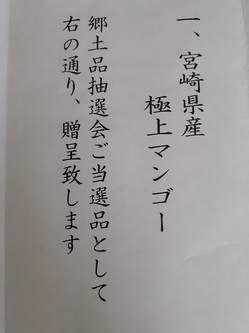 一、宮崎県産
極上マンゴー
郷土品抽選会ご当選品として
右の通り、贈呈致します